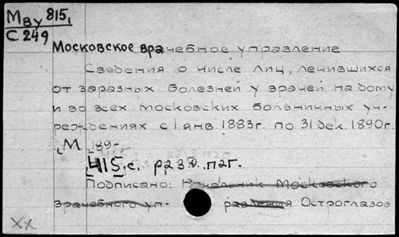 Мву 815,
С 249
Московское врачебное управление
Сведения о числе лиц, лечившихся
от заразных болезней у врачей на дому
и во всех московских больничных уч-
реждениях с 1 янв. 1883г. по 31 дек. 1890г.
М 189-
415 с. разд. паг.
Подписано: Начальник Московского
врачебного уп- равления Остроглазов
XX